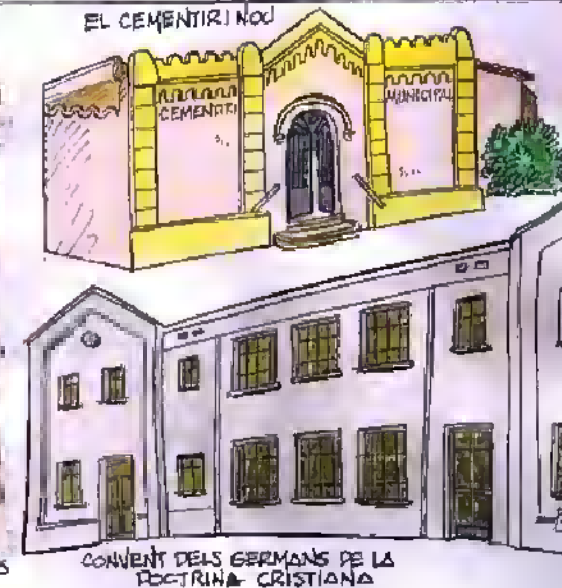 EL CEMENTIRI NOU
CEMENTIRI
MUNICIPAL
CONVENT DELS GERMANS DE LA
DOCTRINA CRISTIANA